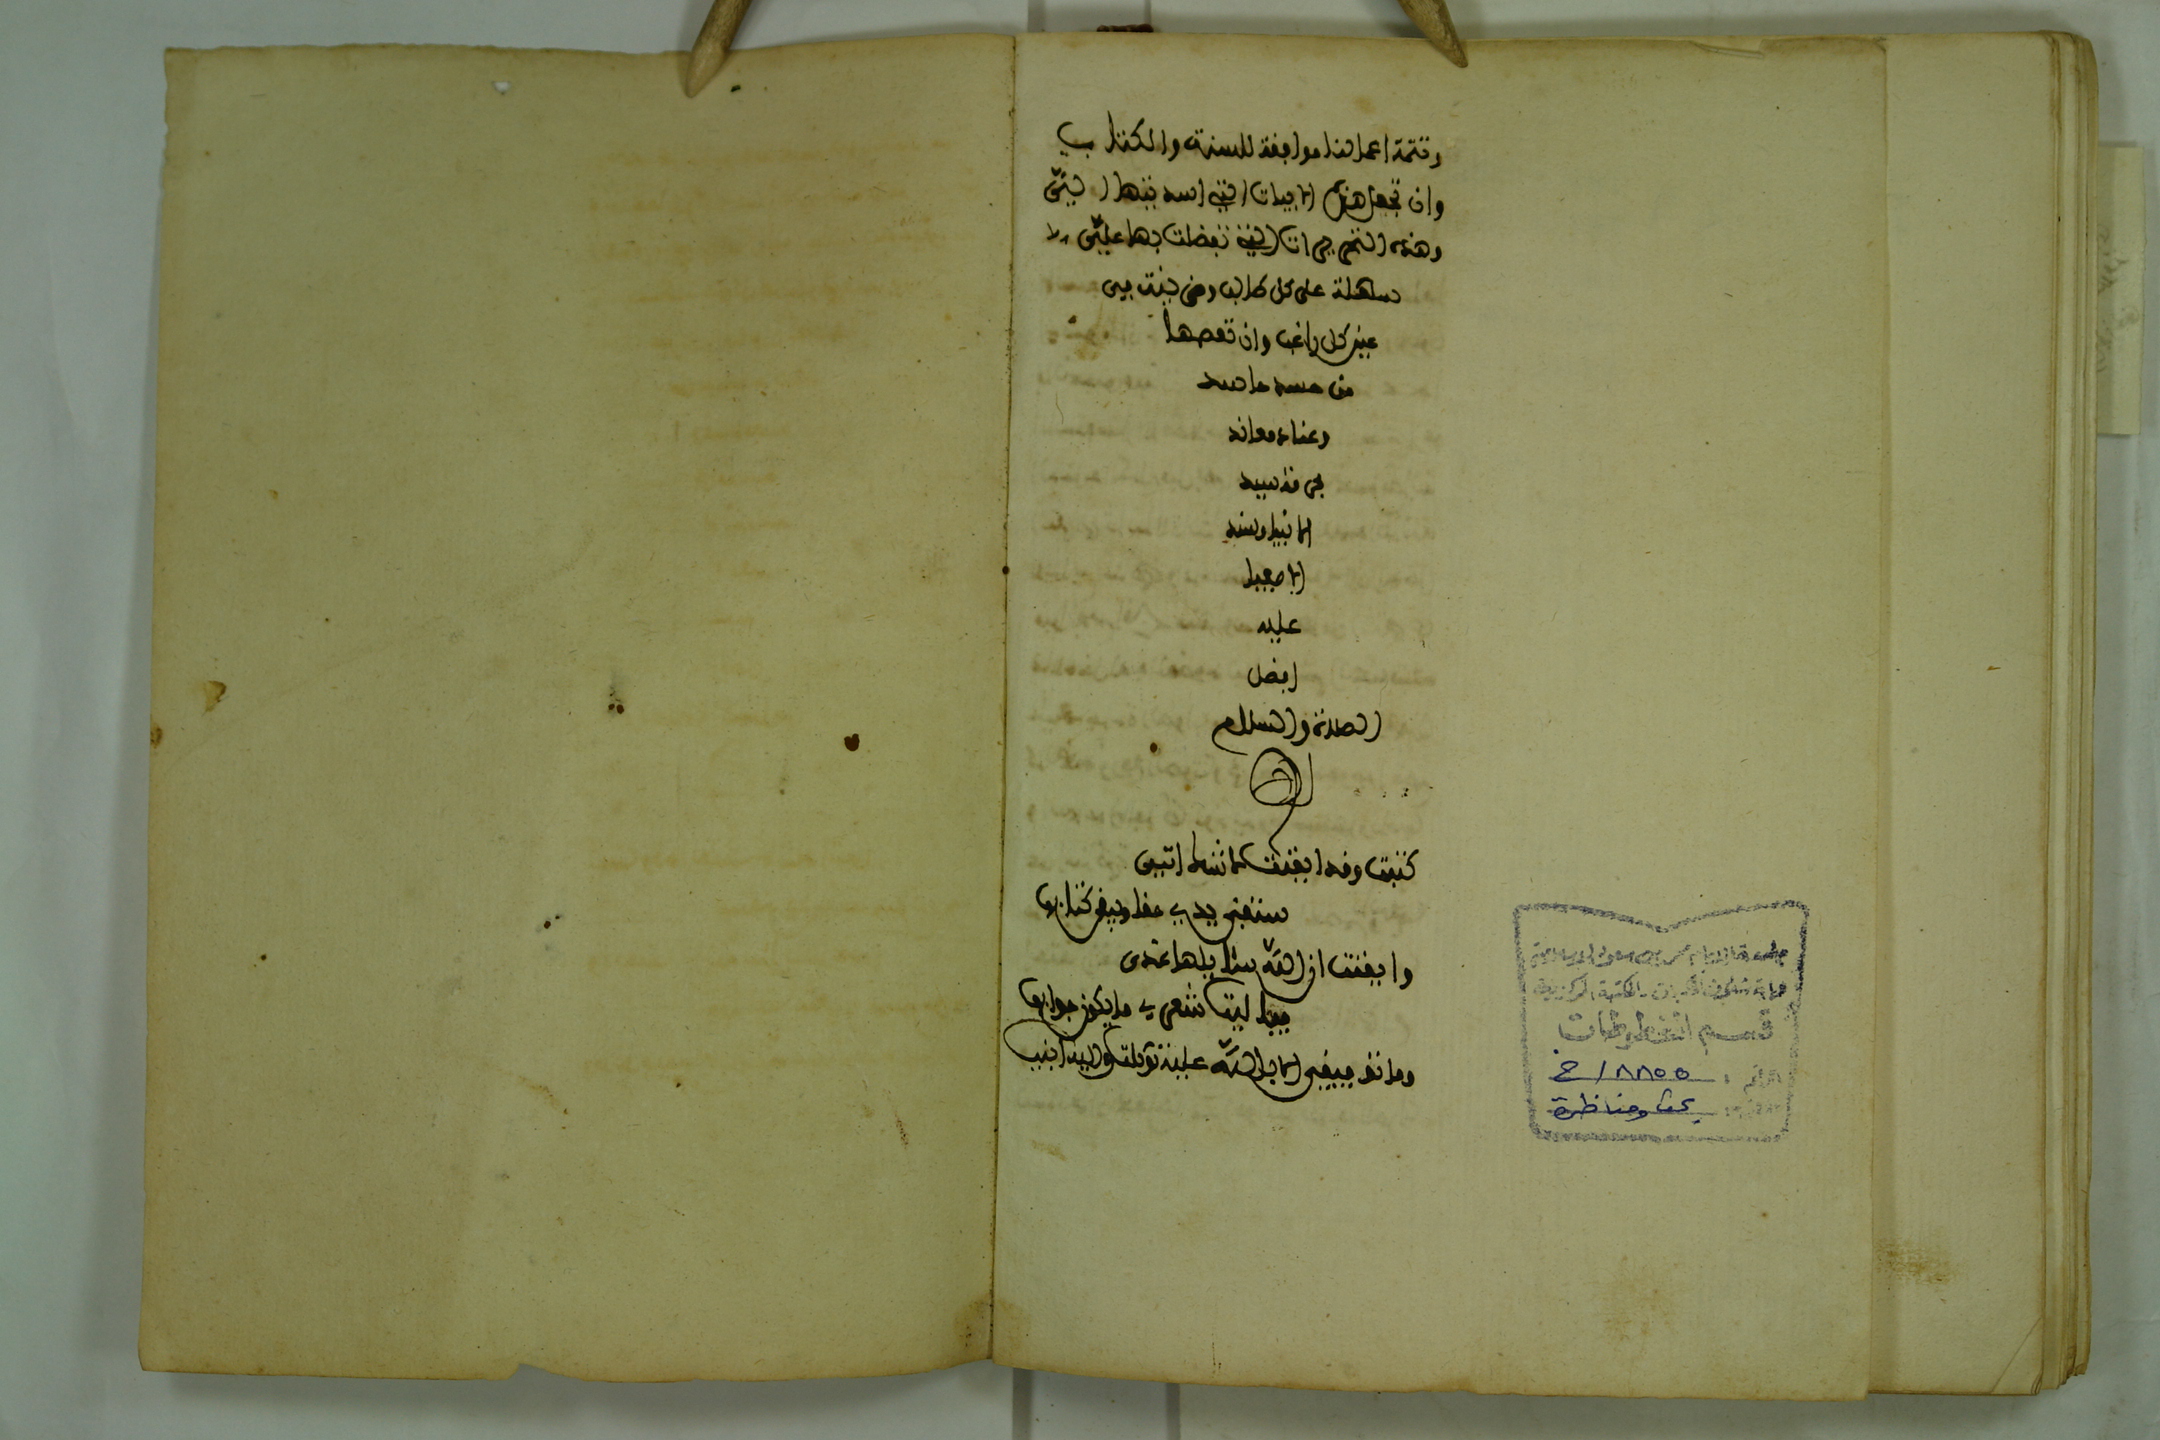 وتتمة اعمالنا موافقة للسنة والكتاب
وان تجعل هذه الابيات التي اسديتها اليّ
وهذه التحريرات التي تفضلت بها عليّ
سهلة على كل طالب ومن
عند كل راغب وان تعصمها
من حسد حاسد
وعناد معاند
بحرمة سيد
الانبيا وسند
الاصفيا
عليه
افضل
الصلاة والسلام
كتبت وقد ايقنت لا شك انني
ستفنى يدي حقا ويبقى كتابها
وايقنت ان الله سائلها غدى
فيا ليت شعري ما يكون جوابها
وما توفيقي الا بالله عليه توكلت واليه انيب
جامعة الامام محمد بن سعود الاسلامية
عمادة شئون المكتبات - المكتبة المركزية
قسم المخطوطات
الرقم : ٨٨٥٥ / خ
بحث ومناظرة